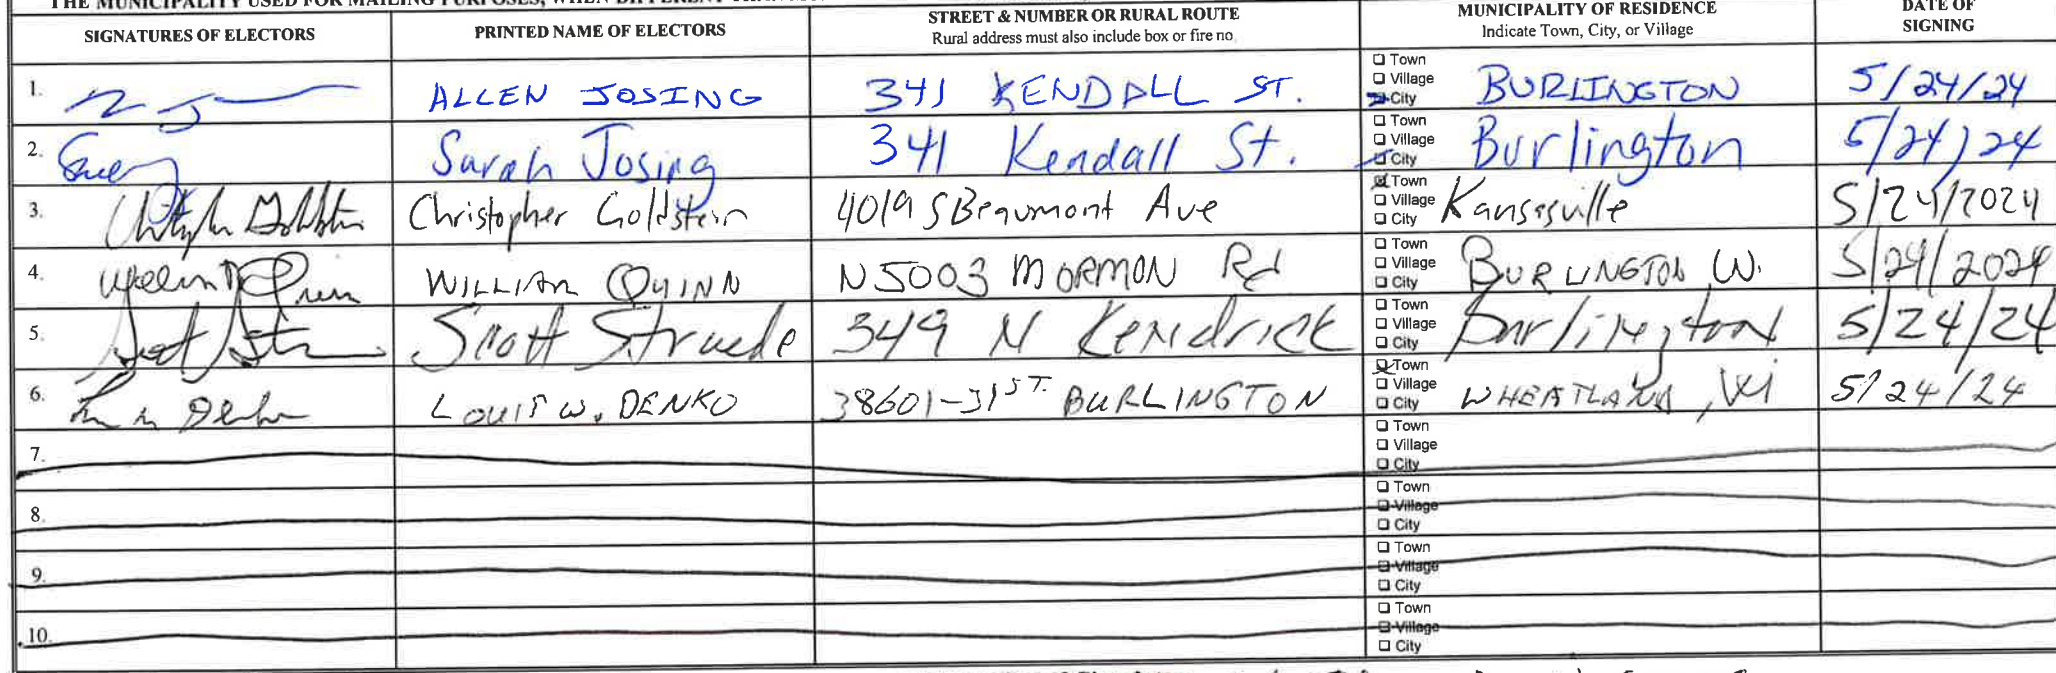 THE MUNICIPALITY USED FOR MAILING PURPOSES, WHEN DIFFERENT THAN
SIGNATURES OF ELECTORS
PRINTED NAME OF ELECTORS
STREET & NUMBER OR RURAL ROUTE
Rural address must also include box or fire no.
MUNICIPALITY OF RESIDENCE
Indicate Town, City, or Village
DATE OF
SIGNING
1. ALLEN JOSING 341 KENDALL ST. Town Village City BURLINGTON 5/24/24
2. Sarah Josing 341 Kendall St. Town Village City Burlington 5/24/24
3. Christopher Goldstein 4019 S Beaumont Ave Town Village City Kansasville 5/24/2024
4. WILLIAM QUINN N5003 MORMON Rd Town Village City BURLINGTON W. 5/24/2024
5. Scott Struede 349 N Kendrick Town Village City Burlington 5/24/24
6. LOUIS W. DENKO 38601-31ST. BURLINGTON Town Village City WHEATLAND, WI 5/24/24
7. Town Village City
8. Town Village City
9. Town Village City
10. Town Village City